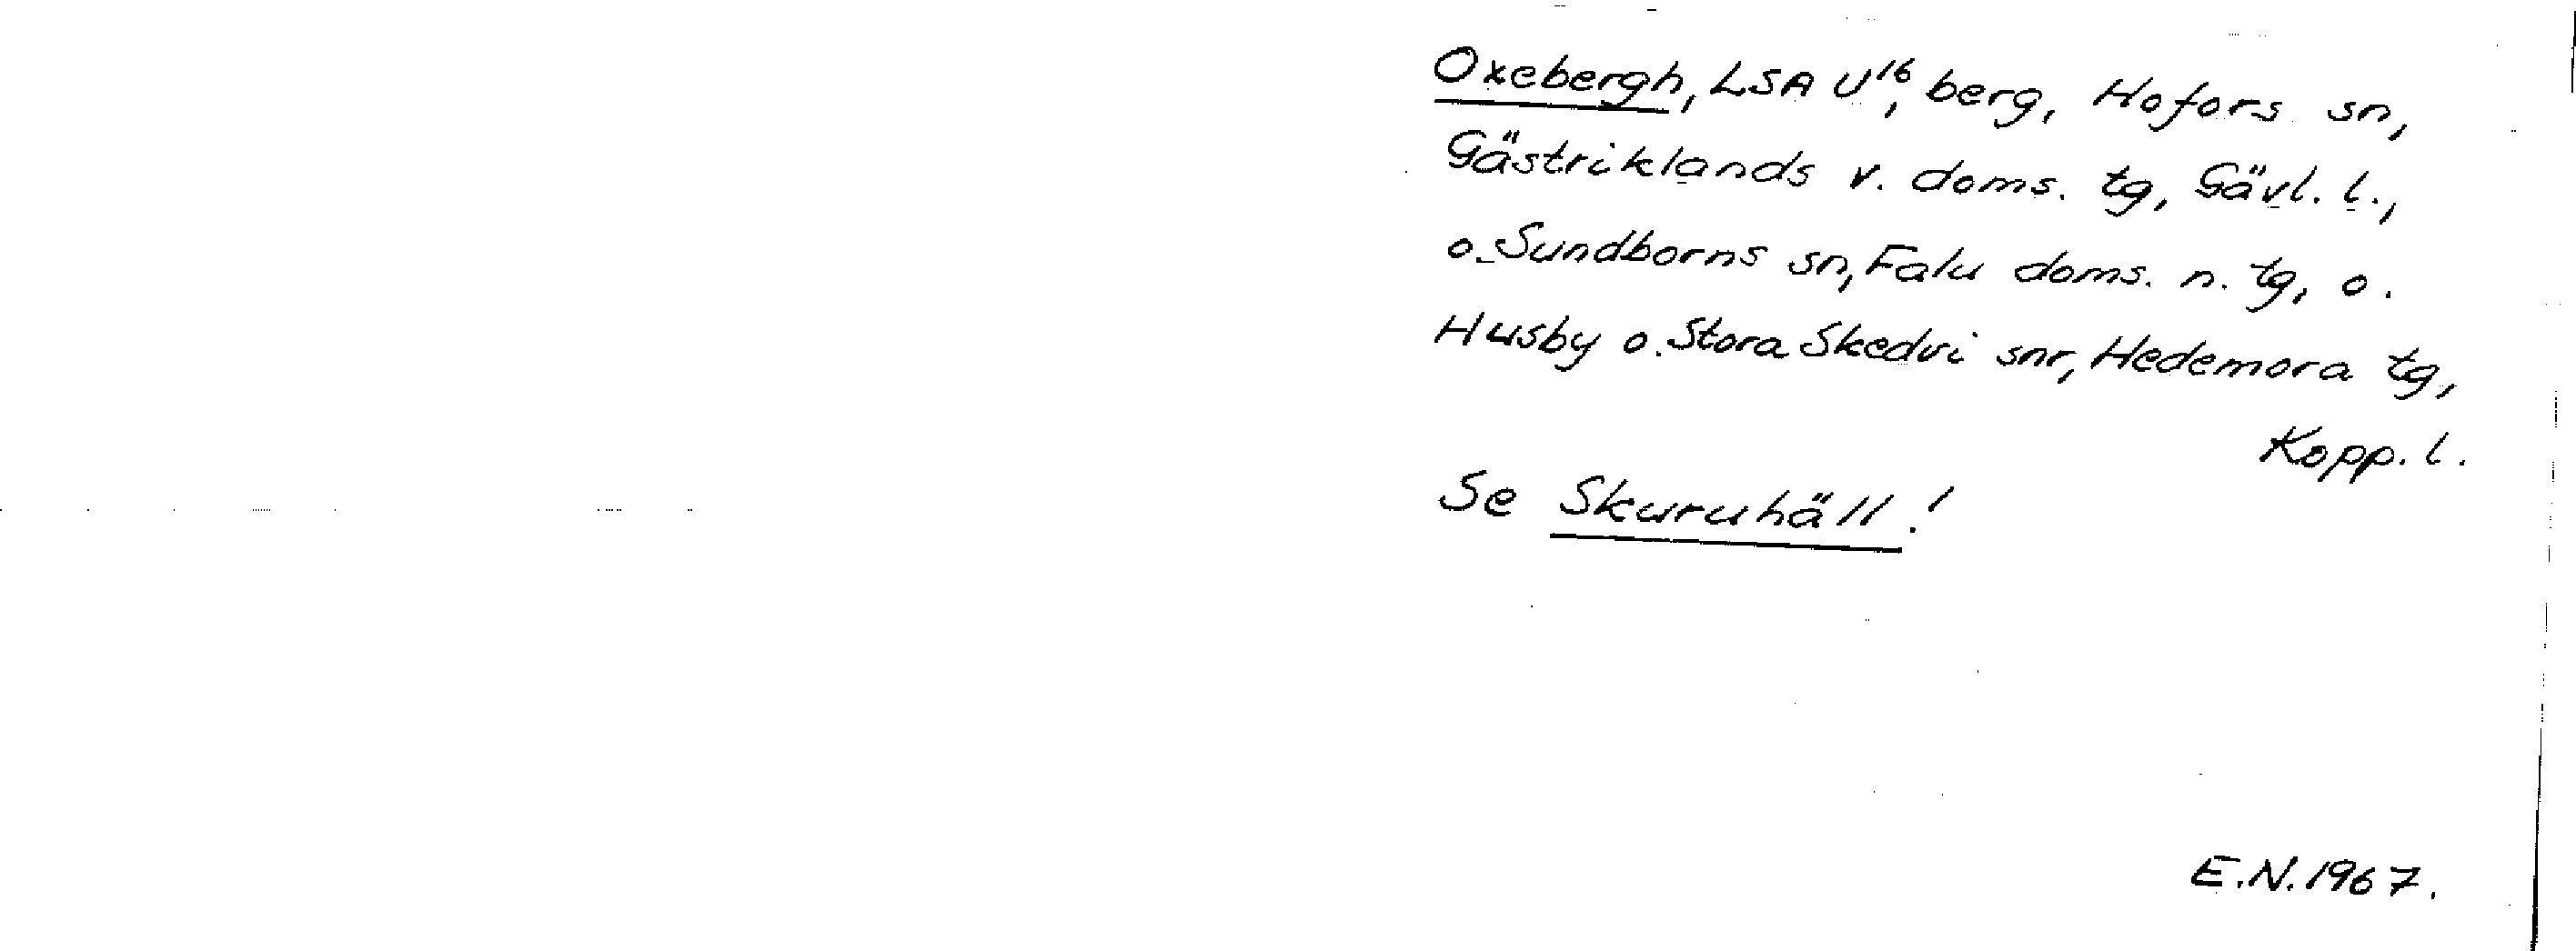 Oxebergh, LSA U16, berg, Hofors sn,
Gästriklands v. doms. tg, Gävl. l.,
o. Sundborns sn, Falu doms. n. tg, o.
Husby o. Stora Skedvi snr, Hedemora tg,
Kopp. l.
Se Skuruhäll!
E.N. 1967.